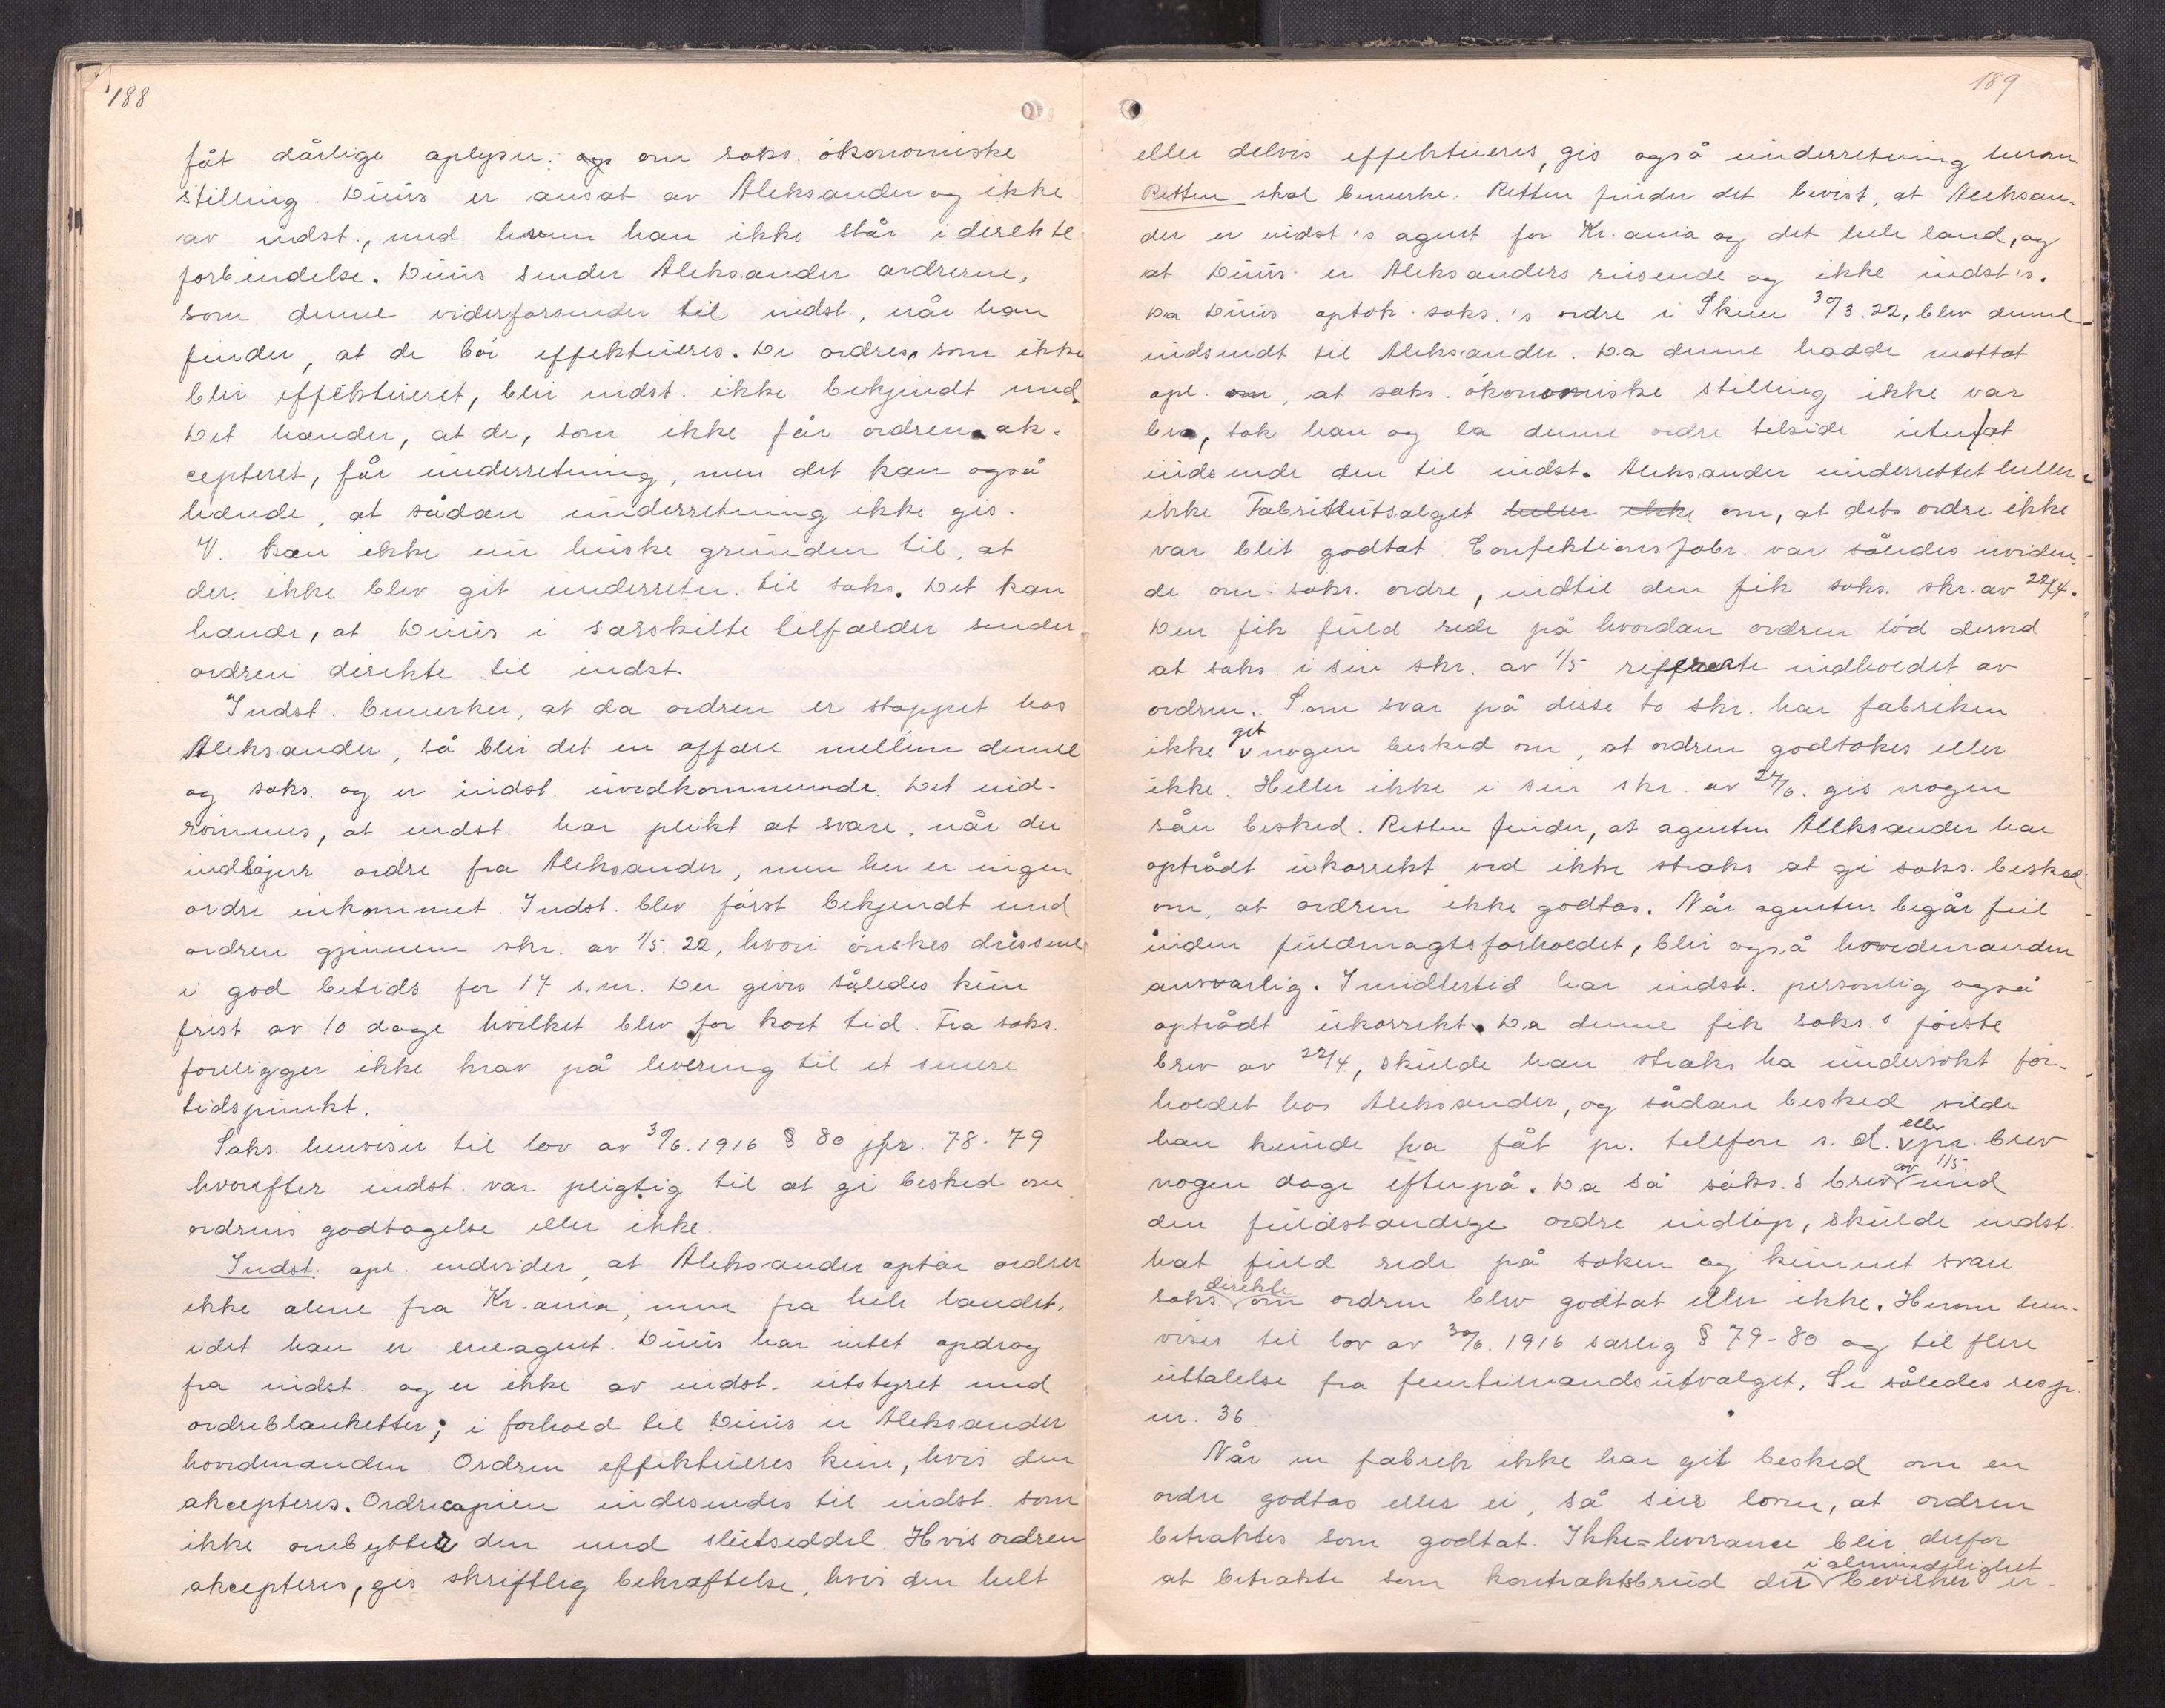 188
fåt dårlige oplysn. om saks. ökonomiske
stilling. Duus er ansat av Aleksander og ikke
av indst., med hvem han ikke står i direkte
forbindelse. Duus sender Aleksander ordrerne,
som denne viderforsender til indst., når han
finder, at de bör effektueres. De ordres, som ikke
blir effektueret, blir indst. ikke bekjendt med.
Det hænder, at de, som ikke får ordren ak-
cepteret, får underretning, men det kan også
hænde, at sådan underretning ikke gis.
V. kan ikke nu huske grunden til, at
der ikke blev git underretn. til saks. Det kan
hænde, at Duus i særskilte tilfælder sender
ordren direkte til indst.
Indst. bemerker, at da ordren er stoppet hos
Aleksander, så blir det en affære mellem denne
og saks. og er indst. uvedkommende. Det ind-
römmes, at indst. har plikt at svare, når der
indlöper ordre fra Aleksander, men her er ingen
ordre inkommet. Indst. blev först bekjendt med
ordren gjennem skr. av 1/5. 22, hvori önskes dressene
i god betids for 17 s.m. Der gives således kun
frist av 10 dage hvilket blev for kort tid. Fra saks.
foreligger ikke krav på levering til et senere
tidspunkt.
Saks. henviser til lov av 30/6. 1916 § 80 jfr. 78. 79
hvorefter indst. var pligtig til at gi besked om
ordrens godtagelse eller ikke.
Indst. opl. endvider, at Aleksander optar ordrer
ikke alene fra Kr.ania, men fra hele landet,
idet han er eneagent. Duus har intet opdrag
fra indst. og er ikke av indst. utstyret med
ordreblanketter; i forhold til Duus er Aleksander
hovedmanden. Ordren effektueres kun, hvis den
akcepteres. Ordrecopien indesendes til indst. som
ikke ombytter den med slutseddel. Hvis ordren
akcepteres, gis skriftlig bekræftelse, hvis den helt
189
eller delvis effektueres, gis også underretning herom
Retten skal bemerke: Retten finder det bevist, at Aleksan-
der er indst's agent for Kr.ania og det hele land, og
at Duus er Aleksanders reisende og ikke indst's.
Da Duus optok saks.'s ordre i Skien 30/3. 22, blev denne
indsendt til Aleksander. Da denne hadde mottat
opl. om, at saks. ökonomiske stilling ikke var
bra, tok han og la denne ordre tilside uten at
indsende den til indst. Aleksander underrettet heller
ikke Fabrikutsalget heller ikke om, at dets ordre ikke
var blit godtat. Confektionsfabr. var således uviden-
de om saks. ordre, indtil den fik saks. skr. av 22/4.
Den fik fuld rede på hvordan ordren löd derved
at saks. i sin skr. av 1/5 refererte indholdet av
ordren. Som svar på disse to skr. har fabriken
ikke git nogen besked om, at ordren godtokes eller
ikke. Heller ikke i sin skr. av 27/6. gis nogen
sån besked. Retten finder, at agenten Aleksander har
optrådt ukorrekt ved ikke straks at gi saks. besked
om, at ordren ikke godtas. Når agenten begår feil
inden fuldmagtsforholdet, blir også hovedmanden
ansvarlig. Imidlertid har indst. personlig også
optrådt ukorrekt. Da denne fik saks.s förste
brev av 22/4, skulde han straks ha undersökt for-
holdet hos Aleksander, og sådan besked vilde
han kunde ha fåt pr. telefon s. d. eller pr. brev
nogen dage efterpå. Da så saks.s brev av 1/5 med
den fuldstændige ordre indlöp, skulde indst.
hat fuld rede på saken og kunnet svare
saks direkte om ordren blev godtat eller ikke. Herom hen-
vises til lov av 30/6. 1916 særlig § 79-80 og til flere
uttalelse fra femtimandsutvalget. Se således resp.
nr. 36.
Når en fabrik ikke har git besked om en
ordre godtas eller ei, så sier loven, at ordren
betraktes som godtat. Ikke=leverance blir derfor
at betrakte som kontraktsbrud der i almindelighet bevirker er-